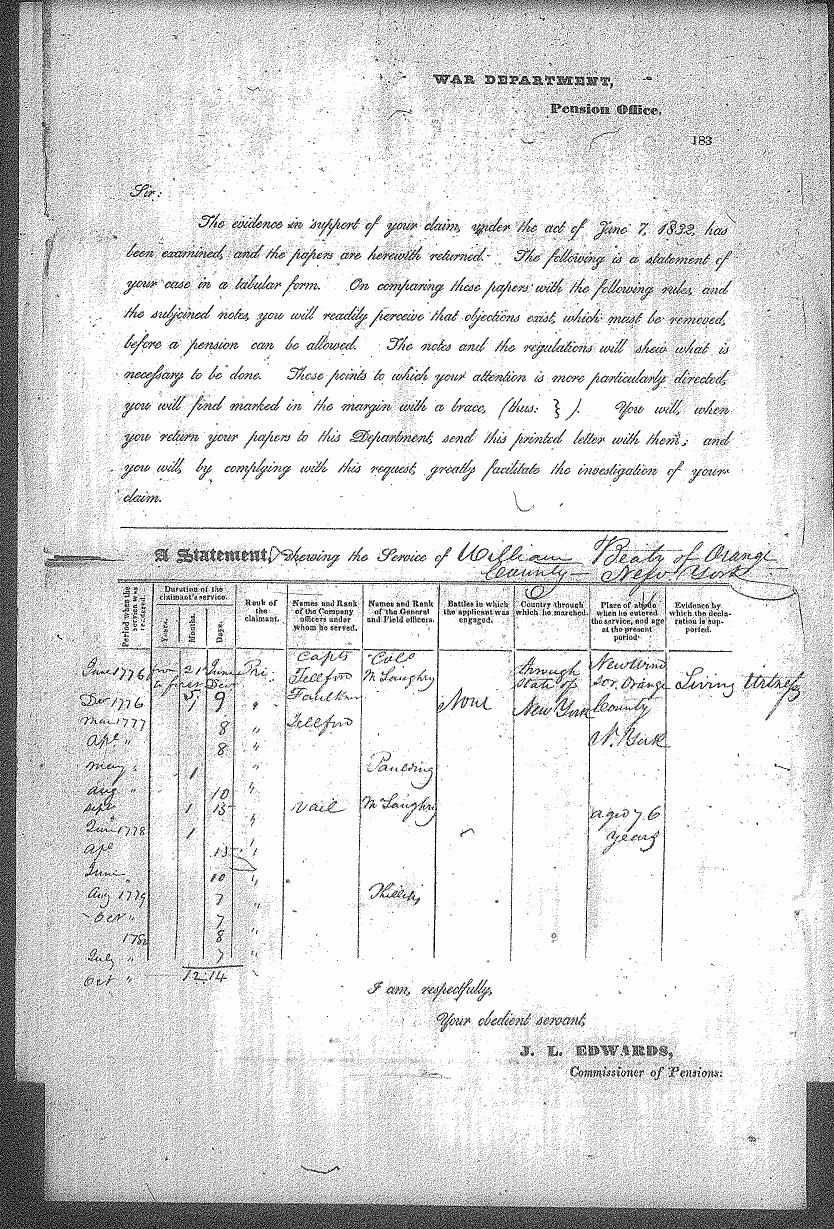 WAR DEPARTMENT,
Pension Office.
183
Sir:
The evidence in support of your claim, under the act of June 7, 1832, has
been examined, and the papers are herewith returned. The following is a statement of
your case in a tabular form. On comparing these papers with the following rules, and
the subjoined notes, you will readily perceive that objections exist, which must be removed,
before a pension can be allowed. The notes and the regulations will shew what is
necessary to be done. Those points to which your attention is more particularly directed,
you will find marked in the margin with a brace, (thus: } ). You will, when
you return your papers to this Department, send this printed letter with them; and
you will, by complying with this request, greatly facilitate the investigation of your
claim.
A Statement, shewing the Service of William Beaty of Orange
County - New York
Period when the service was rendered.
Duration of the claimant's service.
Years. Months. Days.
Rank of the claimant.
Names and Rank of the Company officers under whom he served.
Names and Rank of the General and Field officers.
Battles in which the applicant was engaged.
Country through which he marched.
Place of abode when he entered the service, and age at the present period.
Evidence by which the declaration is supported.
Capts Cols New Wind
June 1776 from 21 June Pri. Tellford McLaughry through sor, Orange Living Witness
to first Dec state of
Dec 1776 5 9 " Faulkn None New York County
Mar 1777 8 " Tellford
Apl " 8 " N. York
May " 1 " Paulding
Aug " 10 "
Sept " 1 15 " Vail McLaughry aged 76
1778 1 " years
Apl 15 "
June 10 "
Aug 1779 7 " Phillips
Oct " 7
178 8 "
July " 7
Oct " 12 14
I am, respectfully,
Your obedient servant,
J. L. EDWARDS,
Commissioner of Pensions.